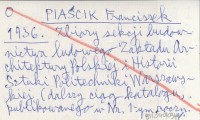 O PIAŚCIK Franciszek
1936. Zbiory sekcji budow-
nictwa ludowego Zakładu Ar-
chitektury Polskiej i Historii
Sztuki Politechniki Warszaw-
skiej (dalszy ciąg katalogu,
publikowanego w Nr. 1-ym poczy.